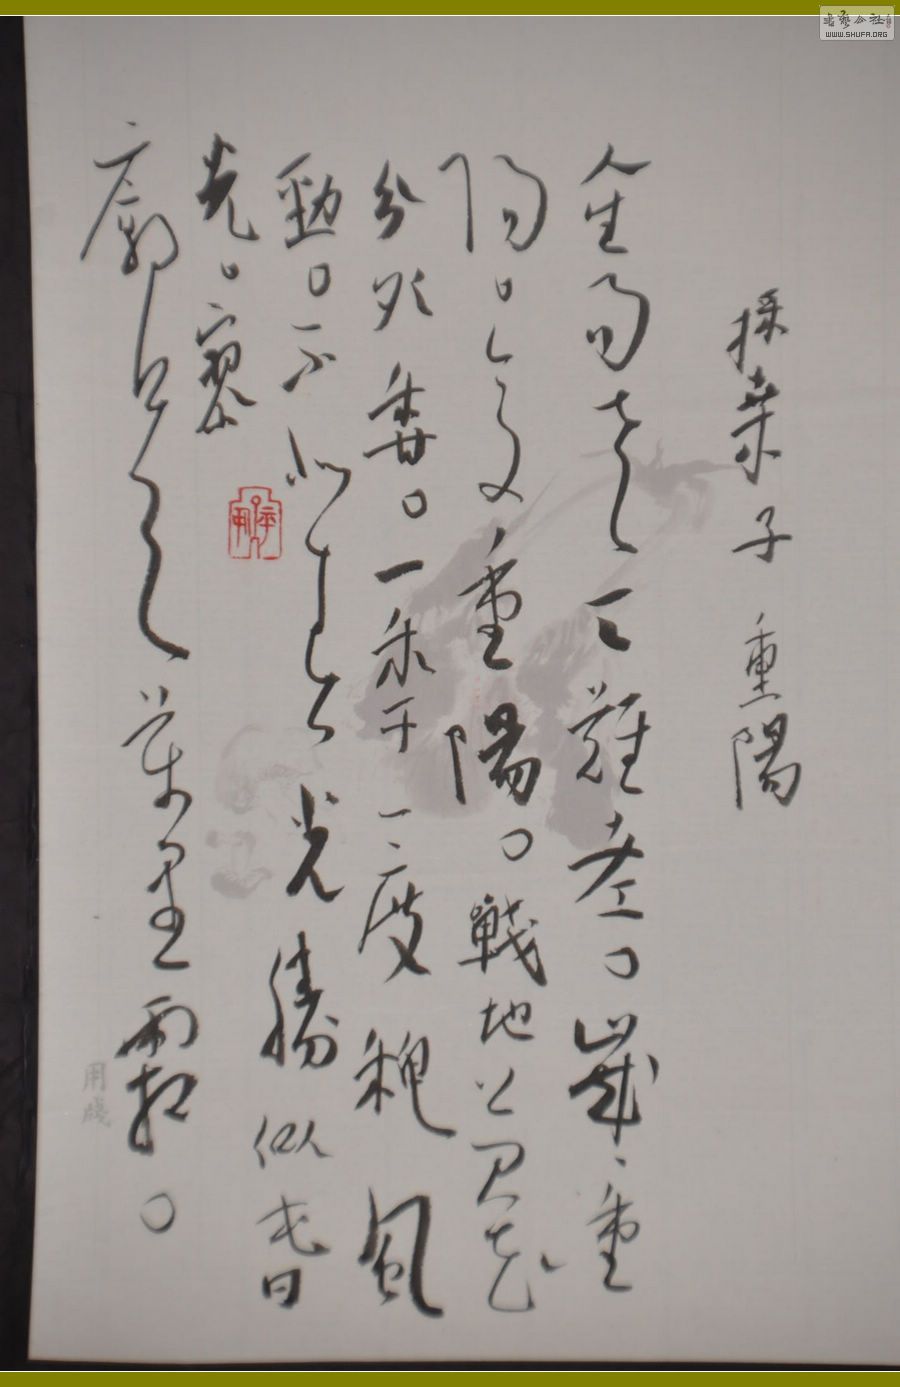 書藝公社
WWW.SHUFA.ORG
採桑子 重陽
人生易老天難老。歲〻重
陽。今又重陽。戰地黄花
分外香。一秊一度秋風
勁。不似春光勝似春
光。寥
廓江天萬里霜。
用箋